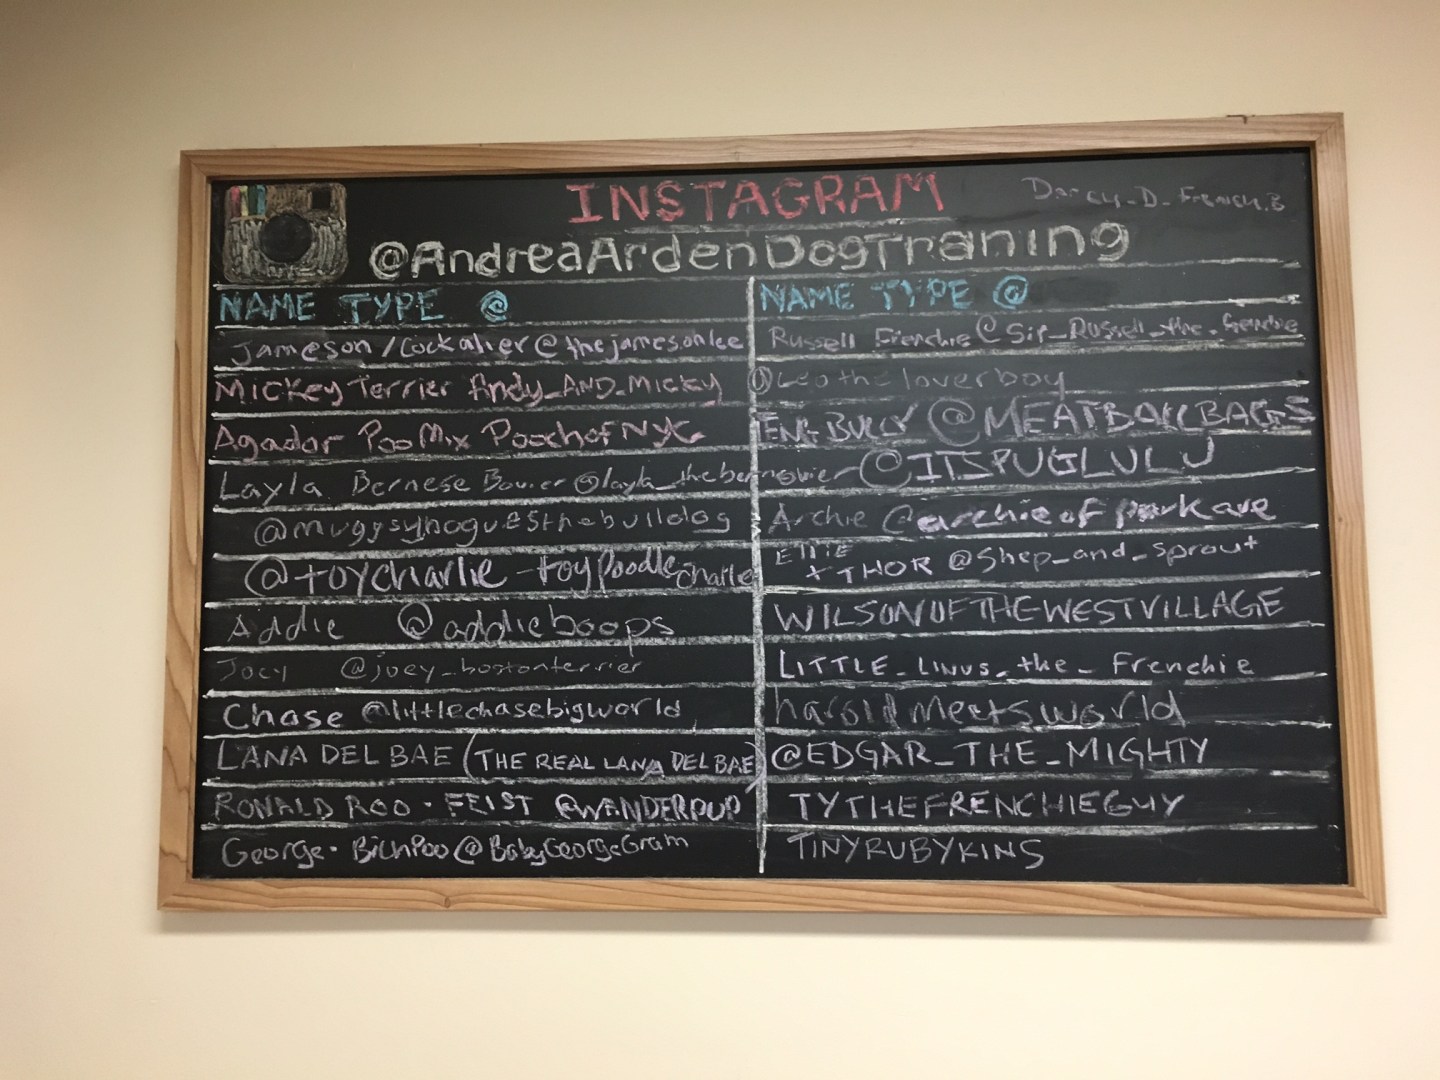 INSTAGRAM
@AndreaArdenDogTraning
NAME TYPE @
Jameson / Cockalier @thejamesonlee
Mickey Terrier Andy_AND_Micky
Agador Poo Mix PoochofNYC
Layla Bernese Bouvier @layla_thebernovier
@muggsybogu
@toycharlie - toy Poodle Charlie
Addie @addieboops
Joey @joey_bostonterrier
Chase @littlechasebigworld
LANA DEL BAE (THE REAL LANA DEL BAE)
RONALD ROO - FEIST @WANDERPUP
George - BichPoo @BabyGeorgeGram
NAME TYPE @
Russell Frenchie @Sir_Russell_the_frenchie
@Leotheloverboy
ENG BULLY @MEATBALLBAGGS
@ITSPUGLULU
Archie @archieofparkave
Ellie + THOR @Shep_and_sprout
WILSONOFTHEWESTVILLAGE
LITTLE_LINUS_the_Frenchie
haroldmeetsworld
@EDGAR_THE_MIGHTY
TYTHEFRENCHIEGUY
TINYRUBYKINS